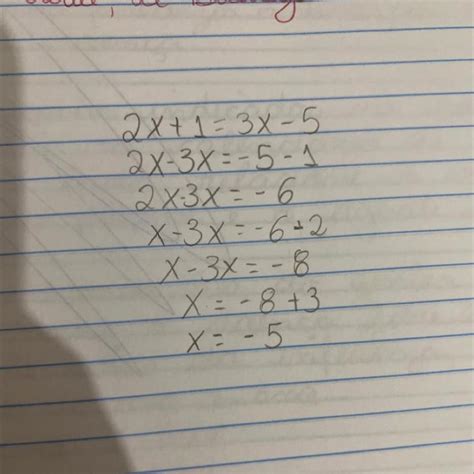 2x+1=3x-5
2x-3x=-5-1
2x-3x=-6
x-3x=-6-2
x-3x=-8
x=-8+3
x=-5